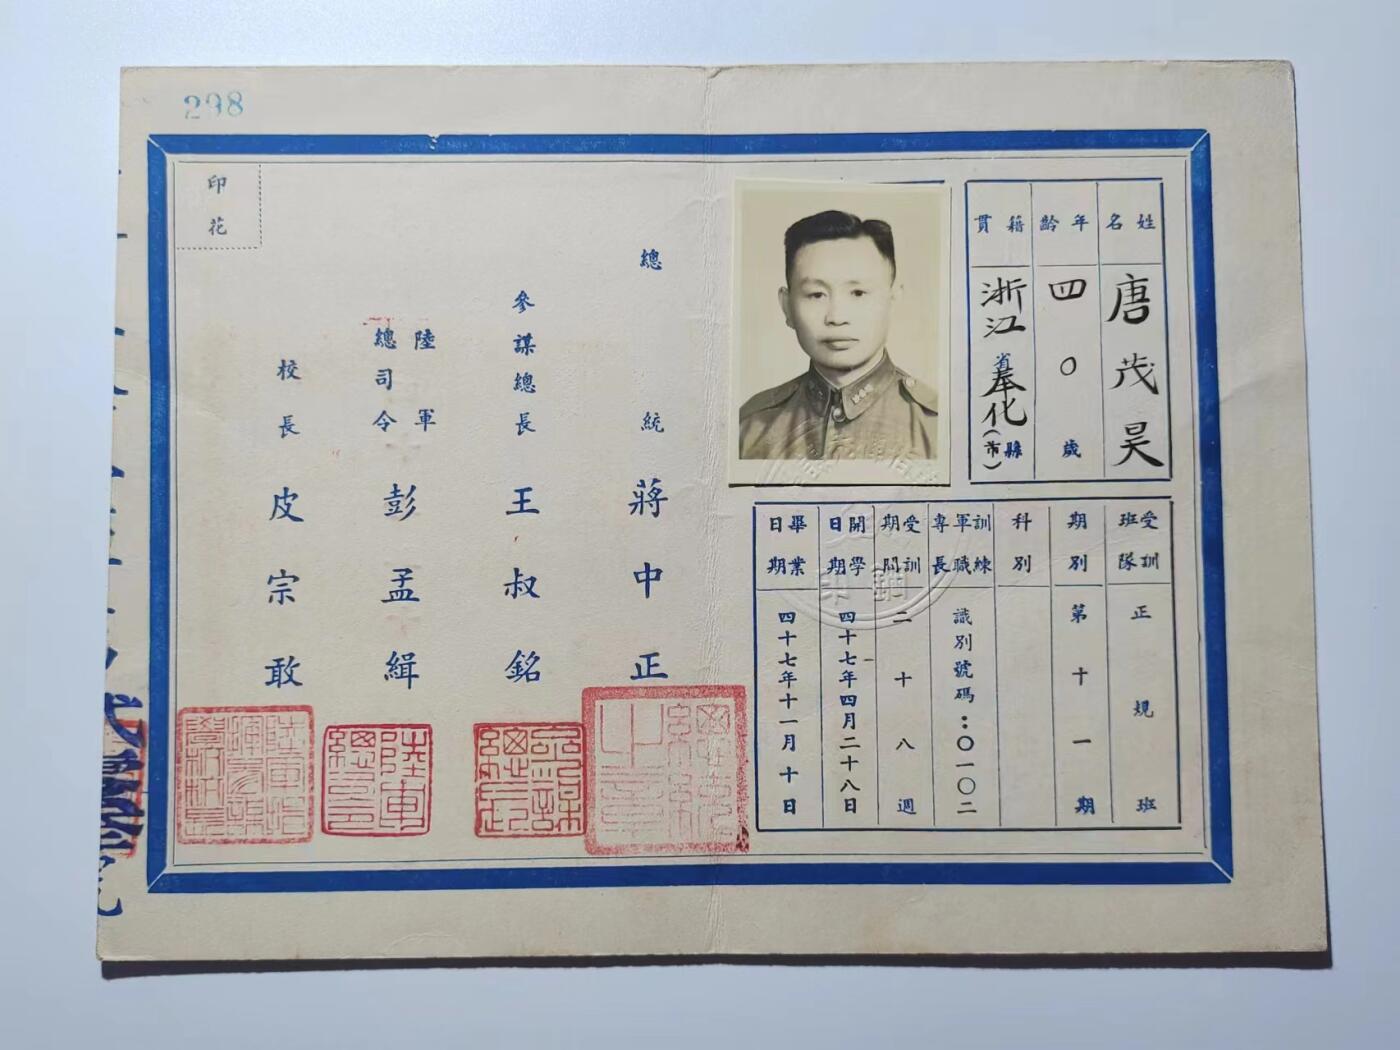 298
印花
姓名 唐茂昊
年齡 四〇歲
籍貫 浙江省奉化縣(市)
受訓班隊 正規班
期別 第十一期
科別
訓練軍職專長 識別號碼:〇一〇二
受訓期間 二十八週
開學日期 四十七年四月二十八日
畢業日期 四十七年十一月十日
總統 蔣中正
參謀總長 王叔銘
陸軍總司令 彭孟緝
校長 皮宗敢
鋼印